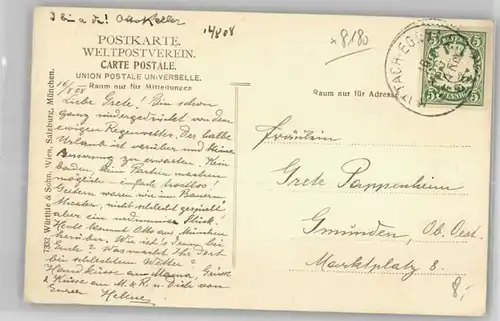 I bin a da! Otto Keller
14/8 08
POSTKARTE.
WELTPOSTVEREIN.
CARTE POSTALE.
UNION POSTALE UNIVERSELLE.
Raum nur für Mitteilungen
Raum nur für Adresse
14/8 08
Liebe Grete! Bin schon
ganz niedergedrückt von dem
ewigen Regenwetter. Der halbe
Urlaub ist vorüber und keine
Besserung zu erwarten. Kein
baden, kein Partien machen
möglich - einfach trostlos!
Gestern waren wir im Bauern
theater, nicht schlecht gespielt
aber ein Stück!
Heute kommt Otto aus München
herüber. Wie ist's denn bei
Euch? Was macht Ihr dort
bei schlechtem Wetter? Grüsse
Handküsse an Mama,
& Küsse an M. & R. u. Dich von
Eurer Helene
Fräulein
Grete Pappenheim
Gmünden, Ob. Oest.
Marktplatz 8.
8,-
x 8180
5
5
BAYERN
7332 Würthle & Sohn, Wien, Salzburg, München.